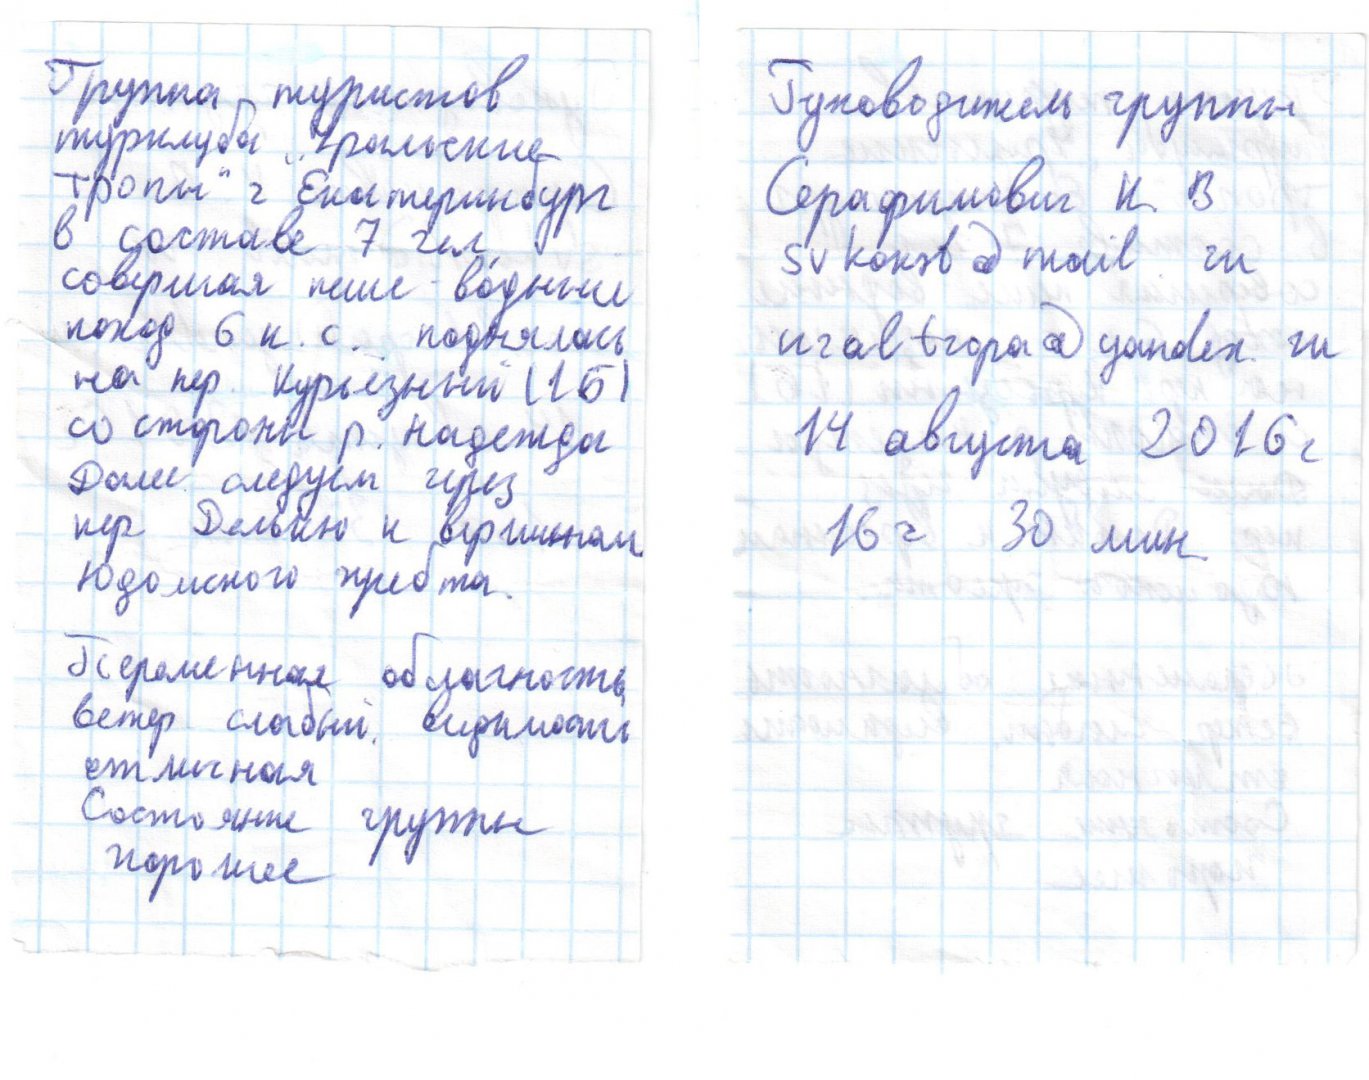 Группа туристов
турклуба "Уральские
тропы" г Екатеринбург
в составе 7 чел,
совершая пеше-водный
поход 6 к.с. поднялась
на пер. Курьёзный (1Б)
со стороны р. Надежда
Далее следуем через
пер Делькю к вершинам
Юдомского хребта.
Переменная облачность,
ветер слабый, видимость
отличная
Состояние группы
хорошее
Руководитель группы
Серафимович К. В
@mail ru
uraltropa@yandex. ru
14 августа 2016 г
16 ч 30 мин